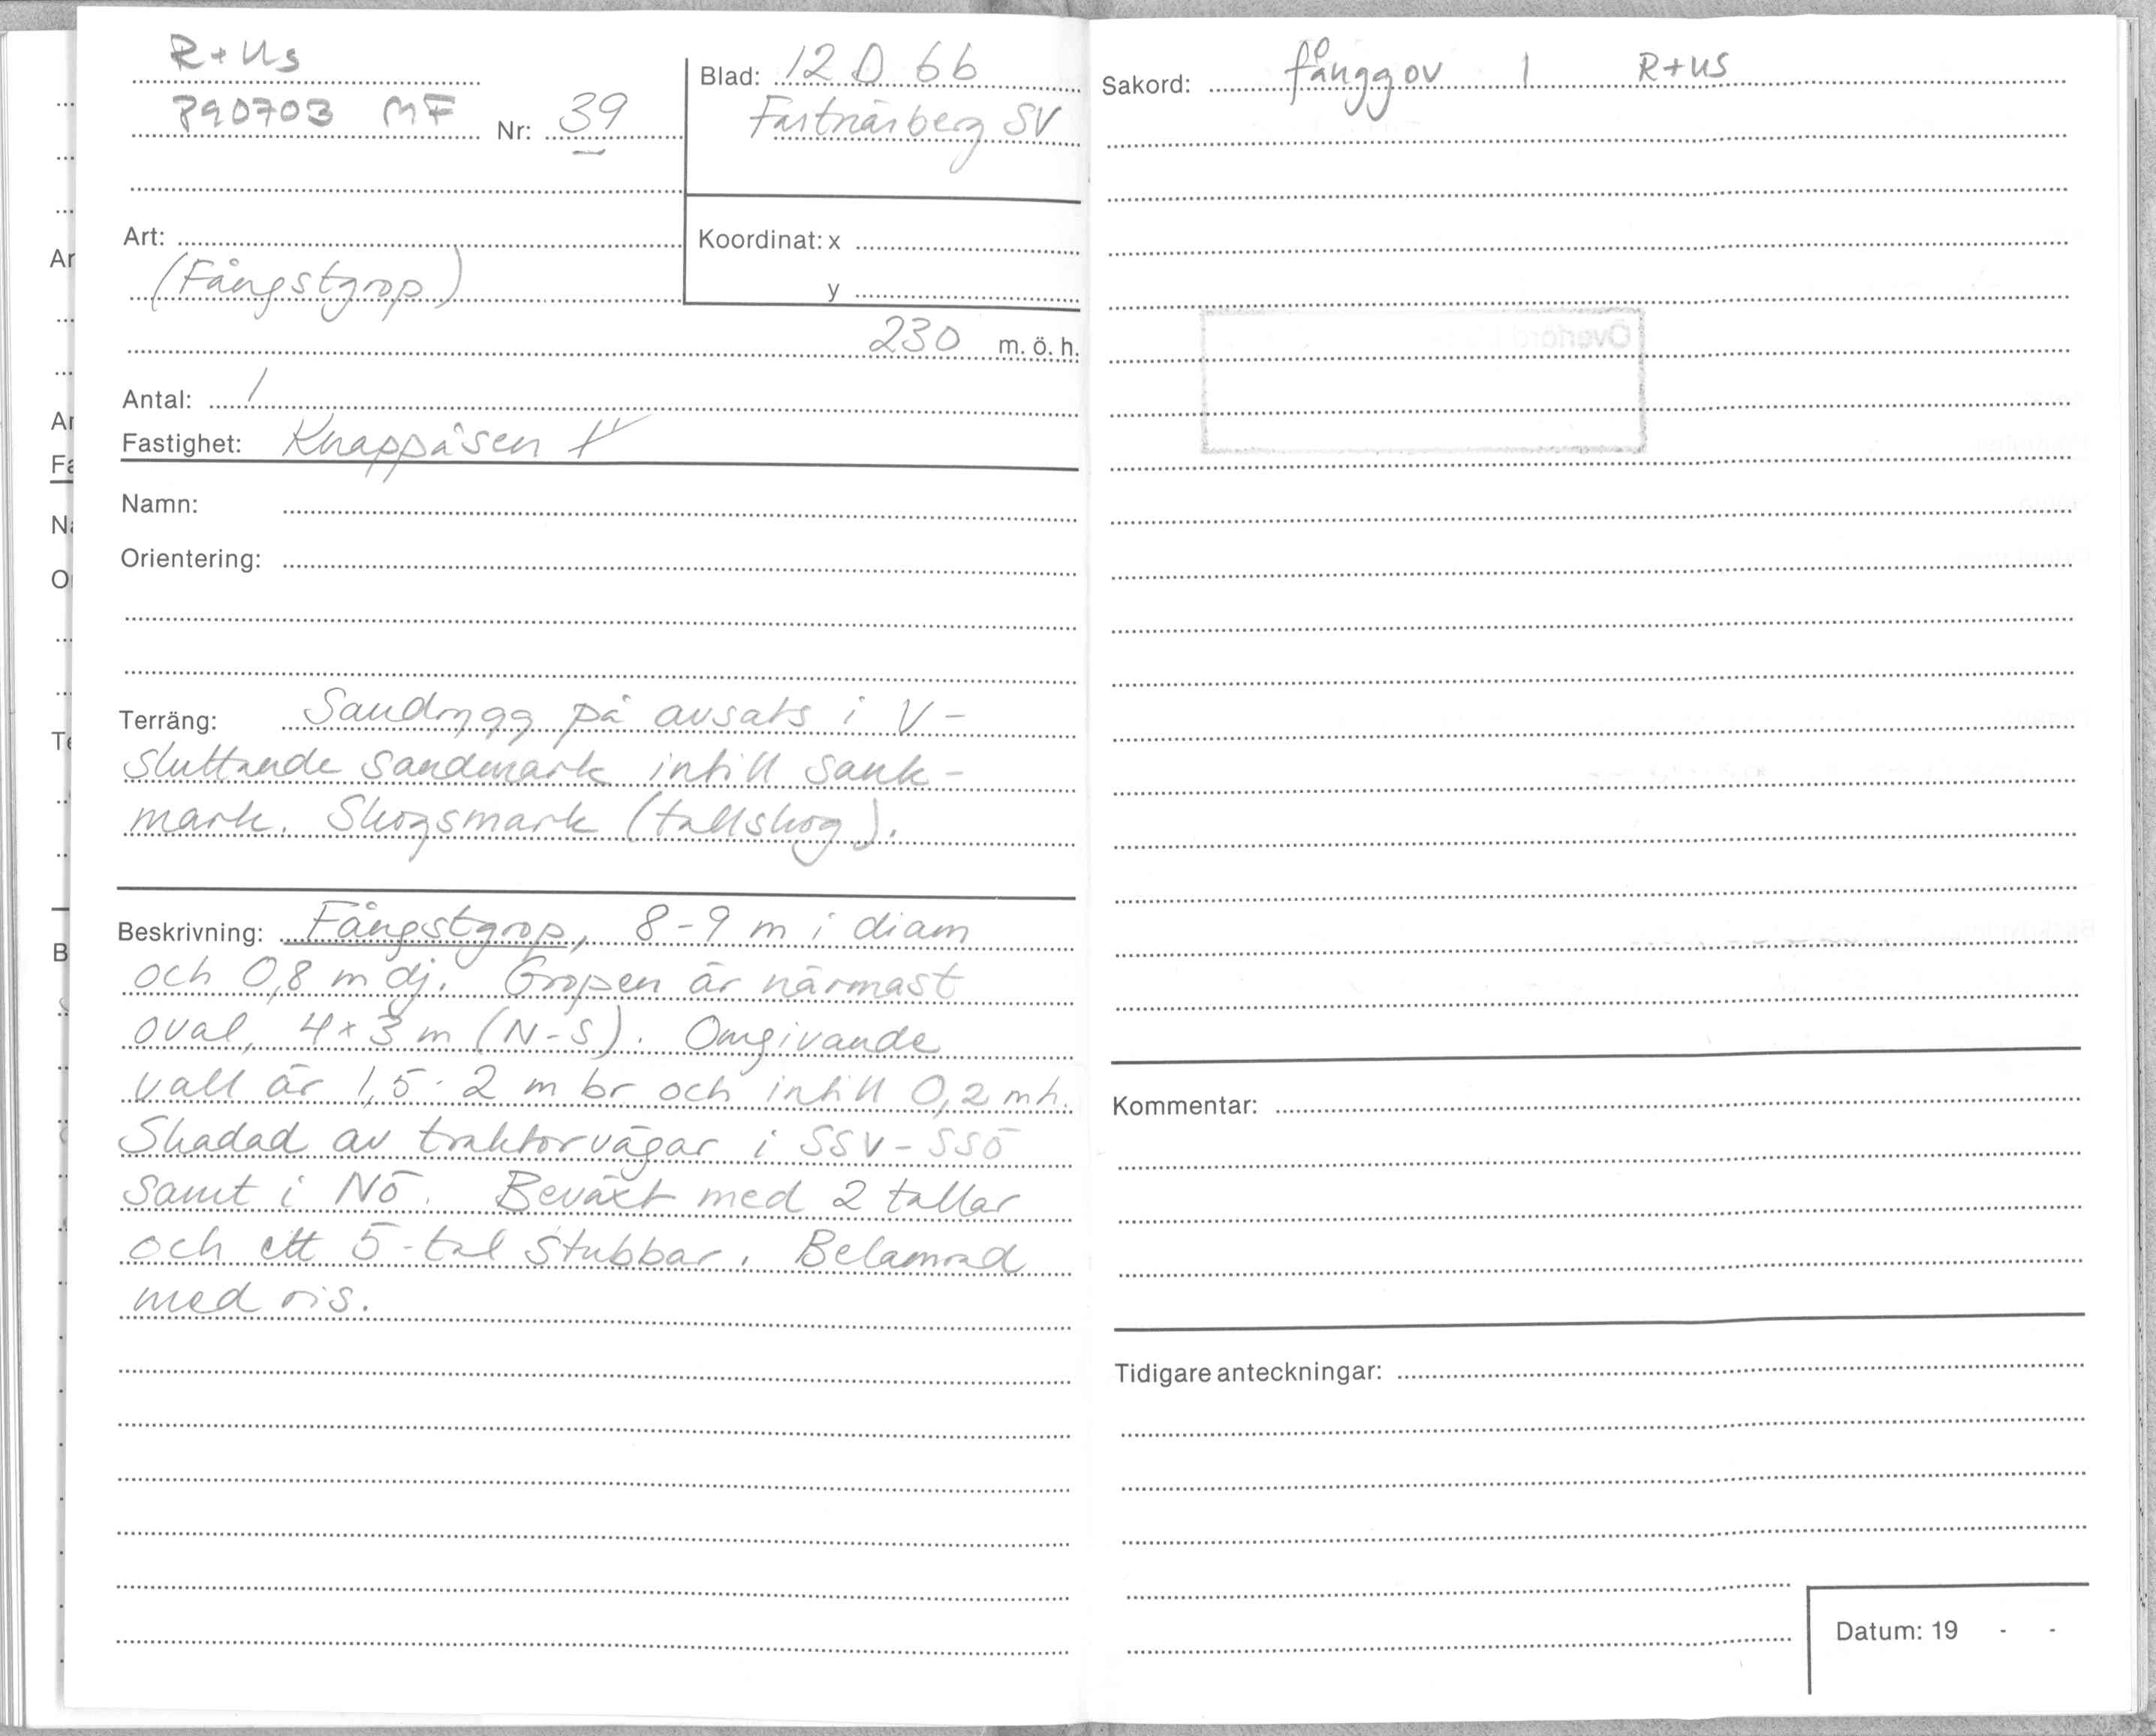 R+Us
790703 MF Nr: 39
Blad: 12 D 6b
Fastnäsberg SV
Art:
(Fångstgrop)
Koordinat: x
y
230 m. ö. h.
Antal: 1
Fastighet: Knappåsen
Namn:
Orientering:
Terräng: Sandrygg på avsats i V-
sluttande sandmark intill sank-
mark. Skogsmark (tallskog).
Beskrivning: Fångstgrop, 8-9 m i diam
och 0,8 m dj. Gropen är närmast
oval, 4x3 m (N-S). Omgivande
vall är 1,5-2 m br och intill 0,2 m h.
Skadad av traktorvägar i SSV-SSÖ
samt i NÖ. Beväxt med 2 tallar
och ett 5-tal stubbar. Belamrad
med ris.
Sakord: fånggov 1 R+US
Överförd
Kommentar:
Tidigare anteckningar:
Datum: 19 - -